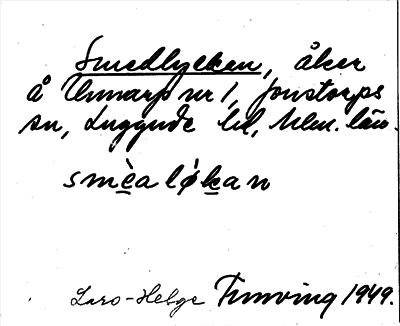 Smedlyckan, åker
å Unnarp nr 1, Jonstorps
sn, Luggude hd, Mlm. län.
smèalǿkan
Lars-Helge Tunving 1949.